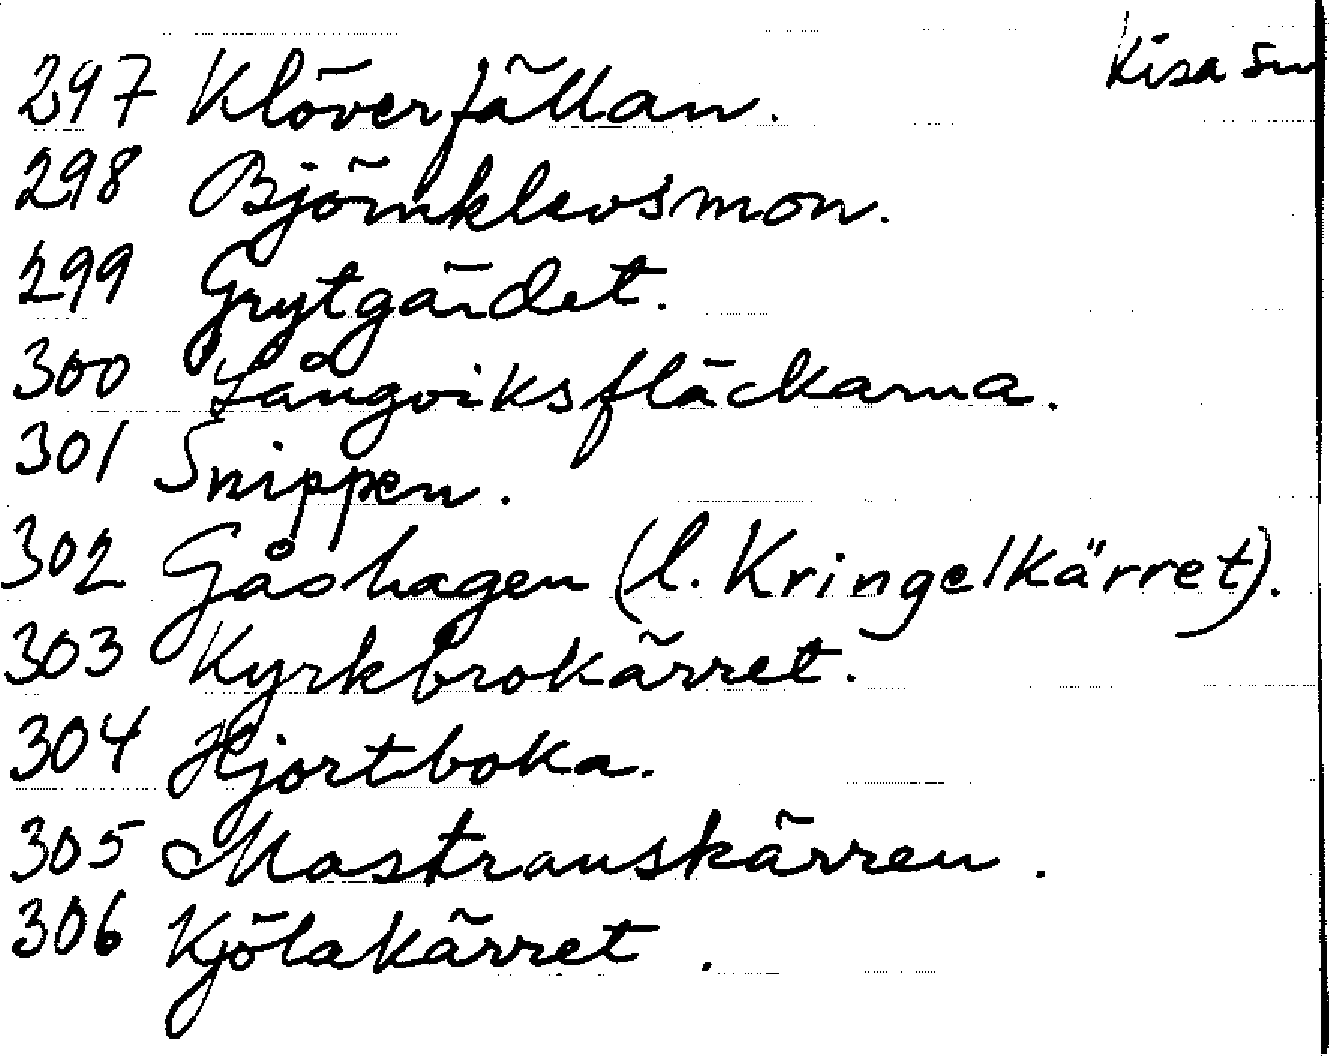 Kisa sn
297 Klöverfällan.
298 Björnklevsmon.
299 Grytgärdet.
300 Långviksfläckarna.
301 Snippen.
302 Gåshagen (l. Kringelkärret).
303 Kyrkbrokärret.
304 Hjortboka.
305 Mostranskärren.
306 Kjölakärret.